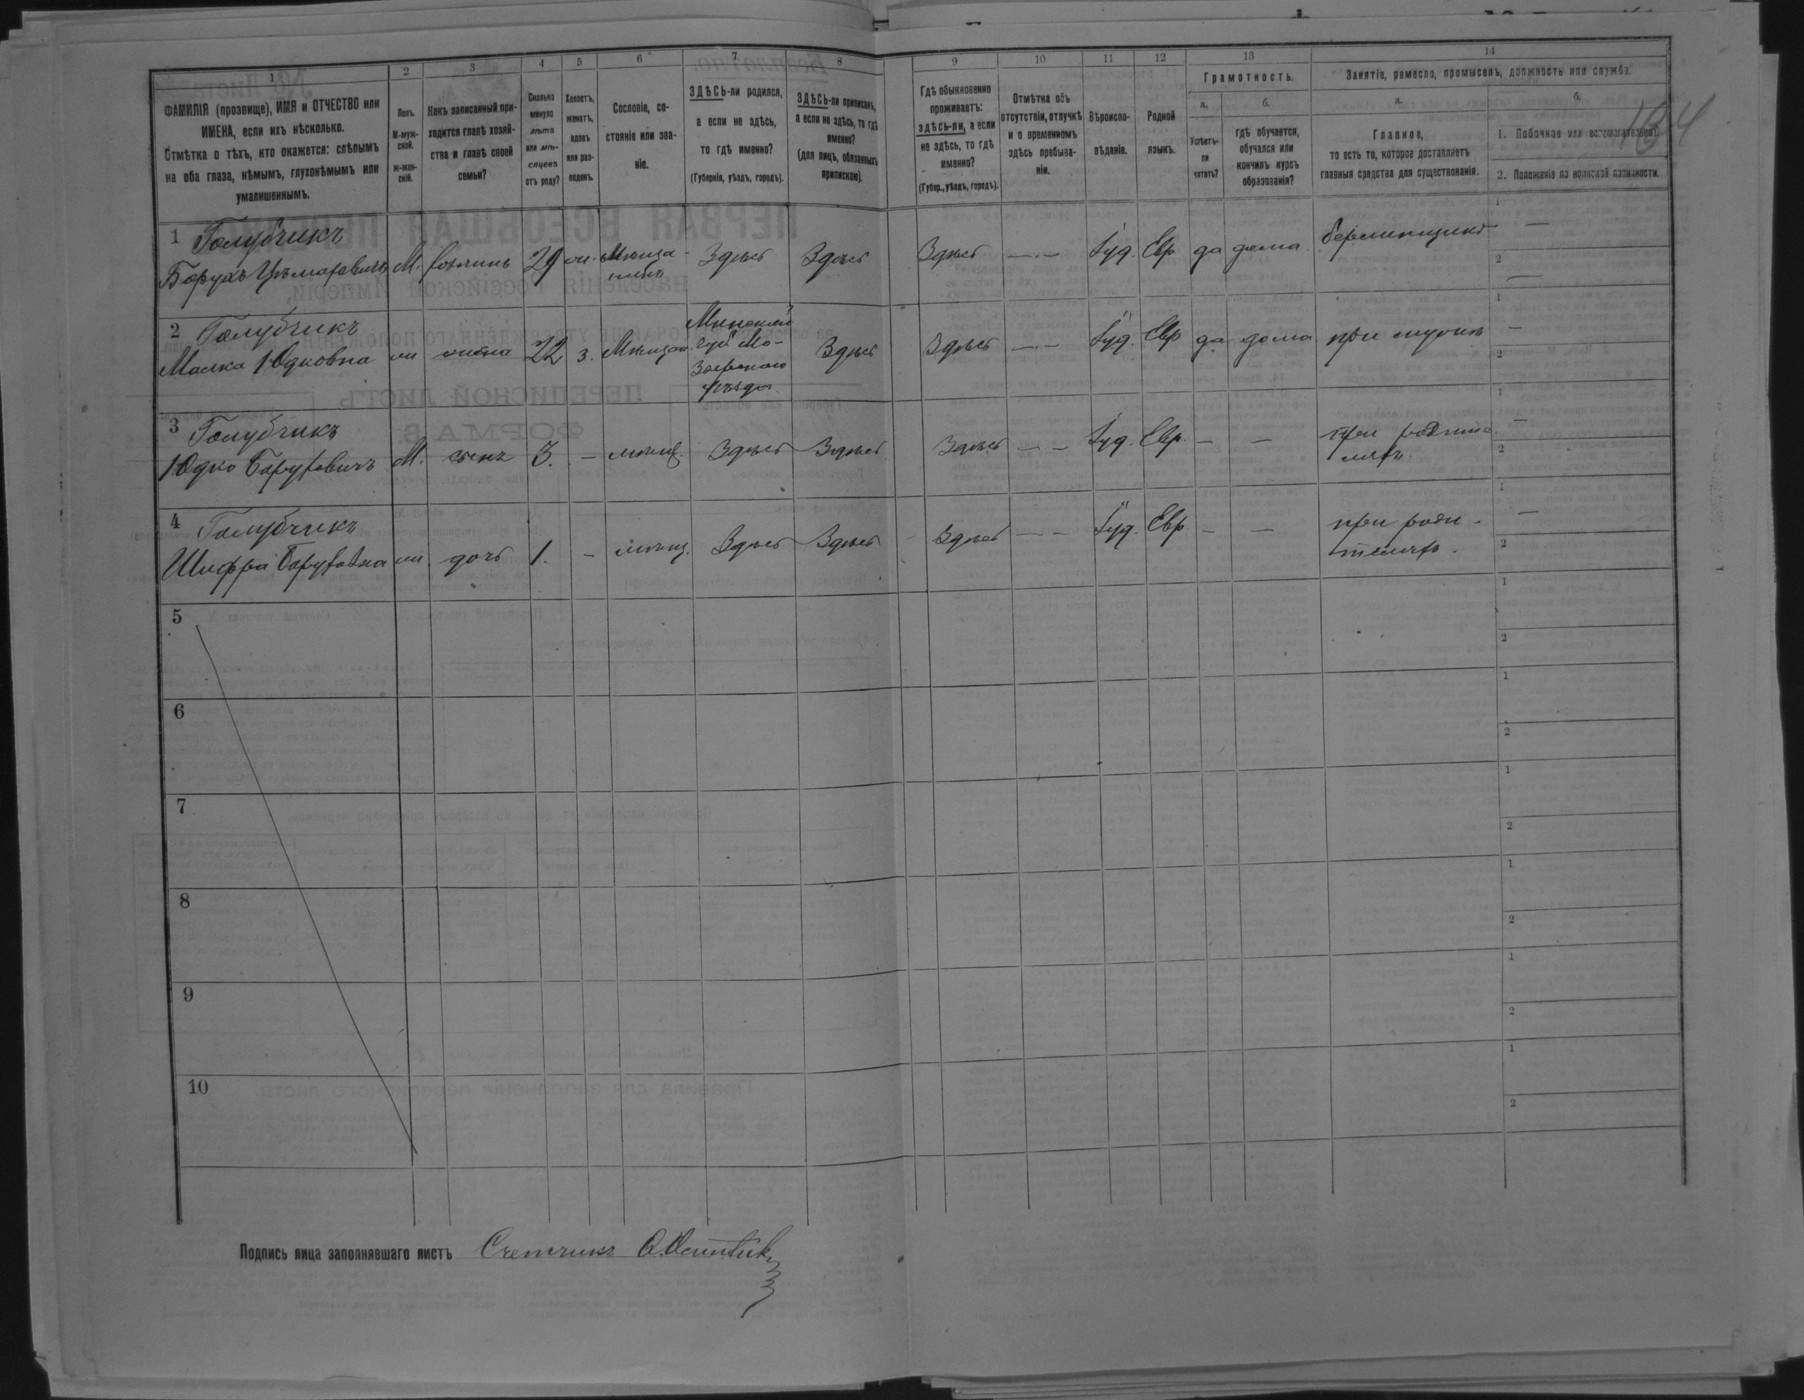 1 2 3 4 5 6 7 8 9 10 11 12 13 14
ФАМИЛІЯ (прозвище), ИМЯ и ОТЧЕСТВО или
ИМЕНА, если ихъ нѣсколько.
Отмѣтка о тѣхъ, кто окажется: слѣпымъ
на оба глаза, нѣмымъ, глухонѣмымъ или
умалишеннымъ.
Полъ.
М-муж-
ской.
Ж-жен-
скій.
Какъ записанный при-
ходится главѣ хозяй-
ства и главѣ своей
семьи?
Сколько
минуло
лѣтъ
или мѣ-
сяцевъ
отъ роду?
Холостъ,
женатъ,
вдовъ
или раз-
веденъ.
Сословіе, со-
стояніе или зва-
ніе.
ЗДѢСЬ-ли родился,
а если не здѣсь,
то гдѣ именно?
(Губернія, уѣздъ, городъ).
ЗДѢСЬ-ли приписанъ,
а если не здѣсь, то гдѣ
именно?
(для лицъ, обязанныхъ
припискою).
Гдѣ обыкновенно
проживаетъ:
здѣсь-ли, а если
не здѣсь, то гдѣ
именно?
(Губер., уѣздъ, городъ).
Отмѣтка объ
отсутствіи, отлучкѣ
и о временномъ
здѣсь пребыва-
ніи.
Вѣроиспо-
вѣданіе.
Родной
языкъ.
Грамотность.
а.
Умѣетъ-
ли
читать?
б.
гдѣ обучается,
обучался или
кончилъ курсъ
образованія?
Занятіе, ремесло, промыселъ, должность или служба.
а.
Главное,
то есть то, которое доставляетъ
главныя средства для существованія.
б.
1. Побочное или вспомогательное.
2. Положеніе по воинской повинности.
1 Голубчикъ
Борухъ М. 29 Мѣща- Здѣсь Здѣсь Здѣсь — — Іуд. Евр да дома —
2 Голубчикъ
Малка Юдковна 22 з. Минской губ Мо- Здѣсь Здѣсь — — Іуд. Евр да дома при мужѣ —
зырскаго
уѣзда
3 Голубчикъ
Юдко Боруховичъ М. сынъ 3. — мѣщ. Здѣсь Здѣсь Здѣсь — — Іуд. Евр. — — при родите
ляхъ —
4 Голубчикъ
Шифра Боруховна дочь 1. — мѣщ. Здѣсь Здѣсь Здѣсь — — Іуд. Евр — — при роди-
теляхъ. —
5
6
7
8
9
10
Подпись лица заполнявшаго листъ Счетчикъ